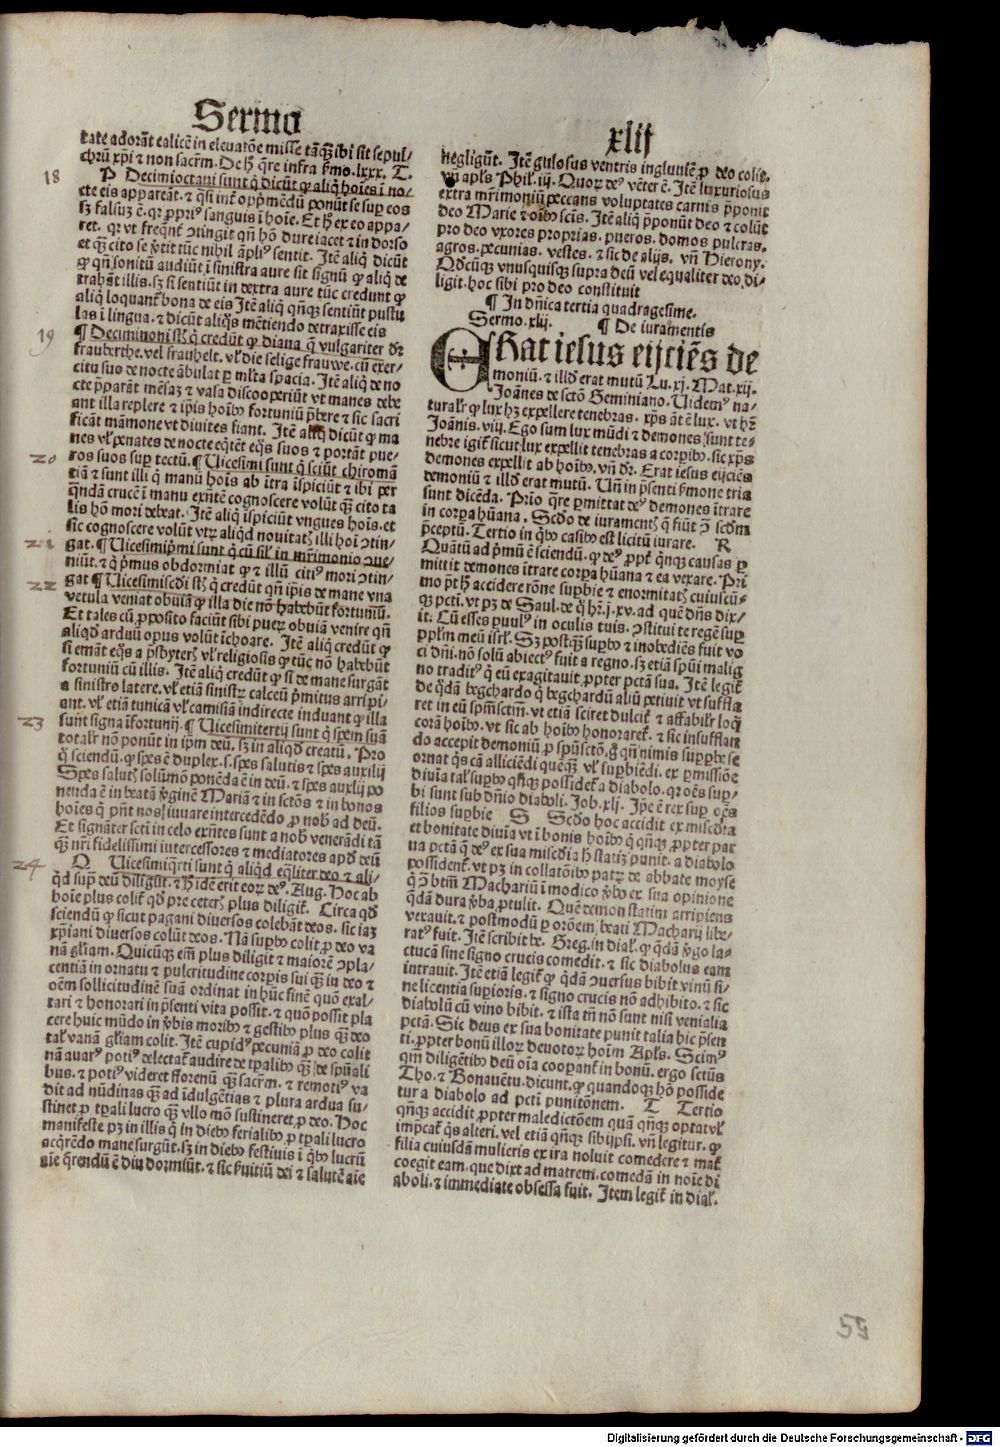 Sermo
xlij
tate adorāt calicē in eleuatōe misse tāq̄ȝ ibi sit sepul/
chrū xp̄i ⁊ non sacr̄m. De h̄ q̄re infra s̄mo. lxxx. T.
18
P Decimioctaui sunt q̇ dicūt ꝙ aliq̇ hoīes ī no/
cte eis appareāt. ⁊ q̄si int̄ opp̄mēdū ponūt se suꝑ eos
sȝ falsuȝ ē. qꝛ ꝓpri⁹ sanguis ī hoīe. Et h̄ ex eo appa/
ret. qꝛ vt freq̄nt̄ ↄtingit qn̄ hō dure iacet ⁊ in dorso
et q̄ȝ cito se v̄tit tūc nihil āpli⁹ sentit. Itē aliq̇ dicūt
ꝙ qn̄ sonitū audiūt ī sinistra aure sit signū ꝙ aliq̇ de
trahāt illis. sȝ si sentiūt in dextra aure tūc credunt ꝙ
aliq̇ loquant̄ bona de eis Itē aliq̇ qn̄qȝ sentiūt pustu
las ī lingua. ⁊ dicūt aliq̇s mētiendo detraxisse eis
19
¶ Deciminoni sūt q̇ credūt ꝙ diana q̄ vulgariter dr̄
frauberthe. vel frauhelt. vl̓ die selige frauwe. cū exer/
citu suo de nocte ābulat ꝑ ml̓ta spacia. Itē aliq̇ de no
cte p̄parāt mēsaȝ ⁊ vasa discooperiūt vt manes debe
ant illa replere ⁊ ip̄is hoībꝰ fortuniū p̄bere ⁊ sic sacri
ficāt māmone vt diuites fiant. Itē aliq̇ dicūt ꝙ ma
nes vl̓ penates de nocte eq̇tēt eq̇s suos ⁊ portāt pue/
20
ros suos suꝑ tectū. ¶ Uicesimi sunt q̇ sciūt chiromā
tiā ⁊ sunt illi q̇ manū hoīs ab ītra īspiciūt ⁊ ibi per
q̄ndā crucē ī manu exn̄tē cognoscere volūt q̄ȝ cito ta
lis hō mori debeat. Itē aliq̇ īspiciūt vngues hoīs. et
sic cognoscere volūt vtꝝ aliqd̄ nouitat̄ illi hoī ↄtin/
21
gat. ¶ Uicesimip̄mi sunt q̇ cū sil̓ in mr̄imonio ↄue/
niūt. ⁊ q̇ p̄mus obdormiat ꝙ ⁊ illū citi⁹ mori ↄtin/
22
gat ¶ Uicesimisc̄di st̄ q̇ credūt qn̄ ip̄is de mane vna
vetula veniat obuiā ꝙ illa die nō habebūt fortuniū.
Et tales cū ꝓposito faciūt sibi pueꝝ obuiā venire qn̄
aliqd̄ arduū opus volūt īchoare. Itē aliq̇ credūt ꝙ
si emāt eq̇s a p̄sbyter̄ vl̓ religiosis ꝙ tūc nō habebūt
fortuniū cū illis. Itē aliq̇ credūt ꝙ si de mane surgāt
a sinistro latere. vl̓ etiā sinistꝝ calceū p̄mitus arripi/
ant. vl̓ etiā tunicā vl̓ camisiā indirecte induant ꝙ illa
23
sunt signa īfortunij. ¶ Uicesimitertij sunt q̇ spem suā
total̓r nō ponūt in ip̄m deū. sȝ in aliqd̄ creatū. Pro
q̊ sciendū. ꝙ spes ē duplex. s. spes salutis ⁊ spes auxilij
Spes salut̄ solūmō ponēda ē in deū. ⁊ spes auxlij po
nenda ē in beatā v̄ginē Mariā ⁊ in sctōs ⁊ in bonos
hoīes q̇ pn̄t nos iuuare intercedēdo ꝓ nob̄ ad deū.
Et signāter scti in celo exn̄tes sunt a nob̄ venerādi tā
q̄ȝ nr̄i fidelissimi intercessores ⁊ mediatores apd̄ deū
24
Q Uicesimiq̄rti sunt q̇ aliqd̄ eq̄liter deo ⁊ ali/
q̇d suꝑ deū diligūt. ⁊ h̄ idē erit eoꝝ de⁹. Aug. Hoc ab
hoīe plus colit̄ qd̄ pre ceter̄ plus diligit̄. Circa qd̄
sciendū ꝙ sicut pagani diuersos colebāt deos. sic iaȝ
xp̄iani diuersos colūt deos. Nā supbꝰ colit ꝓ deo va
nā gl̓iam. Quicūqȝ em̄ plus diligit ⁊ maiorē ↄpla/
centiā in ornatu ⁊ pulcritudine corꝑis sui q̄ȝ in deo ⁊
oēm sollicitudinē suā ordinat in hūc finē quō exal/
tari ⁊ honorari in p̄senti vita possit. ⁊ quō possit pla
cere huic mūdo in v̄bis moribꝰ ⁊ gestibꝰ plus q̄ȝ deo
tal̓r vanā gl̓iam colit. Itē cupid⁹ pecuniā ꝓ deo colit
nā auar⁹ poti⁹ delectat̄ audire de tꝑalibꝰ q̄ȝ de spūali
bus. ⁊ poti⁹ videret florenū q̄ȝ sacr̄m. ⁊ remoti⁹ va
dit ad nūdinas q̄ȝ ad īdulgētias ⁊ plura ardua su/
stinet ꝓ tꝑali lucro q̄ȝ vllo mō sustineret ꝓ deo. Hoc
manifeste pȝ in illis q̇ in diebꝰ ferialibꝰ ꝓ tꝑali lucro
acq̇rēdo mane surgūt. sȝ in diebꝰ festiuis ī q̇bꝰ lucrū
aīe q̄rendū ē diu dormiūt. ⁊ sic s̄uitiū dei ⁊ salutē aīe
negligūt. Itē gulosus ventris ingluuiē ꝓ deo colit.
vn̄ apl̓s Phil̓. iij. Quoꝝ de⁹ vēter ē. Itē luxuriosus
extra mr̄imoniū peccans voluptates carnis p̄ponit
deo Marie ⁊ oībꝰ scīs. Itē aliq̇ p̄ponūt deo ⁊ colūt
pro deo vxores proprias. pueros. domos pulcras.
agros. pecunias. vestes. ⁊ sic de alijs. vn̄ Hierony.
Qd̄cūqȝ vnusquisqȝ supra deū vel equaliter deo di/
ligit. hoc sibi pro deo constituit
¶ In dn̄ica tertia quadragesime.
Sermo. xlij. ¶ De iuramentis
ERat iesus eijciēs de
moniū. ⁊ illd̄ erat mutū Lu. xj. Mat. xij.
Joānes de sctō Geminiano. Uidem⁹ na/
tural̓r ꝙ lux hȝ expellere tenebras. xp̄s āt ē lux. vt hr̄
Joānis. viij. Ego sum lux mūdi ⁊ demones sunt te/
nebre igit̄ sicut lux expellit tenebras a corꝑibꝰ. sic xp̄s
demones expellit ab hoībꝰ. vn̄ dr̄. Erat iesus eijciēs
demoniū ⁊ illd̄ erat mutū. Un̄ in p̄senti s̄mone tria
sunt dicēda. Prīo q̄re ꝑmittat de⁹ demones ītrare
in corpa hūana. Scd̄o de iurament̄ q̄ fiūt ↄ̄ scd̄m
p̄ceptū. Tertio in q̇bꝰ casibꝰ est licitū iurare. R
Quātū ad p̄mū ē sciendū. ꝙ de⁹ ꝓpt̄ qn̄qȝ causas ꝑ
mittit demones ītrare corpa hūana ⁊ ea vexare. Pri
mo ꝓpt̄ h̄ accidere rōne supbie ⁊ enormitat̄ cuiuscū=
qȝ pcti. vt pȝ de Saul. de q̊ hr̄. j. r. xv. ad quē dn̄s dix/
it. Cū esses puul⁹ in oculis tuis. ↄstitui te regē suꝑ
ppl̓m meū isrl̓. Sȝ postq̄ȝ supbꝰ ⁊ inobediēs fuit vo
ci dn̄i. nō solū abiect⁹ fuit a regno. sȝ etiā spūi malig
no tradit⁹ q̇ eū exagitauit ꝓpter pctā sua. Itē legit̄
de q̊dā begchardo q̇ begchardū aliū petiuit vt suffla
ret in eū spm̄sctm̄. vt etiā sciret dulcit̄ ⁊ affabil̓r loq̇
corā hoībꝰ. vt sic ab hoībꝰ honoraret̄. ⁊ sic insufflan
do accepit demoniū ꝓ spūsctō. q̇ qn̄ nimis supꝑbe se
ornat q̇s cā alliciēdi quēqȝ vl̓ supbiēdi. ex ꝑmissiōe
diuīa tal̓ supbꝰ qn̄qȝ possidet̄ a diabolo. qꝛ oēs sup/
bi sunt sub dn̄io diaboli. Job. xlj. Ip̄e ē rex suꝑ oēs
filios supbie S Scd̄o hoc accidit ex miscd̄ia
et bonitate diuīa vt ī bonis hoībꝰ q̇ qn̄qȝ ꝓpter par
ua pctā q̄ de⁹ ex sua miscd̄ia h̄ statiȝ punit. a diabolo
possident̄. vt pȝ in collatōībꝰ patꝝ de abbate moyse
q̇ ↄ̄ btm̄ Machariū ī modico v̄bo ex sua opinione
q̄dā dura v̄ba ꝓtulit. Quē demon statim arripiens
vexauit. ⁊ postmodū ꝑ orōem beati Macharij libe/
rat⁹ fuit. Itē scribit be. Greg. in dial̓. ꝙ q̄dā v̄go la=
ctucā sine signo crucis comedit. ⁊ sic diabolus eam
intrauit. Itē etiā legit̄ ꝙ q̇dā ↄuersus bibit vinū si/
ne licentia supioris. ⁊ signo crucis nō adhibito. ⁊ sic
diabolū cū vino bibit. ⁊ ista tn̄ nō sunt nisi venialia
pctā. Sic deus ex sua bonitate punit talia hic p̄sen
ti. ꝓpter bonū illoꝝ deuotoꝝ hoīm Apl̓s. Scim⁹
qm̄ diligētibꝰ deū oīa coopant̄ in bonū. ergo sctūs
Tho. ⁊ Bonauētu. dicunt. ꝙ quandoqȝ hō posside
tur a diabolo ad pcti punitōnem. T Tertio
qn̄qȝ accidit ꝓpter maledictōem quā qn̄qȝ optat vl̓
imp̄cat̄ q̇s alteri. vel etiā qn̄qȝ sibijpsi. vn̄ legitur. ꝙ
filia cuiusdā mulieris ex ira noluit comedere ⁊ mat̄
coegit eam. que dixt ad matrem. comedā in noīe di
aboli. ⁊ immediate obsessa fuit. Item legit̄ in dial̓.
55
Digitalisierung gefördert durch die Deutsche Forschungsgemeinschaft - DFG